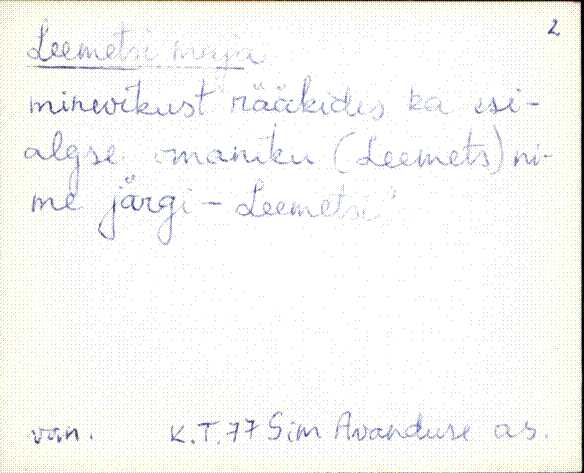 2
Leemetsi maja
minevikust rääkides ka esi-
algse omaniku (Leemets) ni-
me järgi - Leemetsi
van. K.T. 77 Sim Avanduse as.